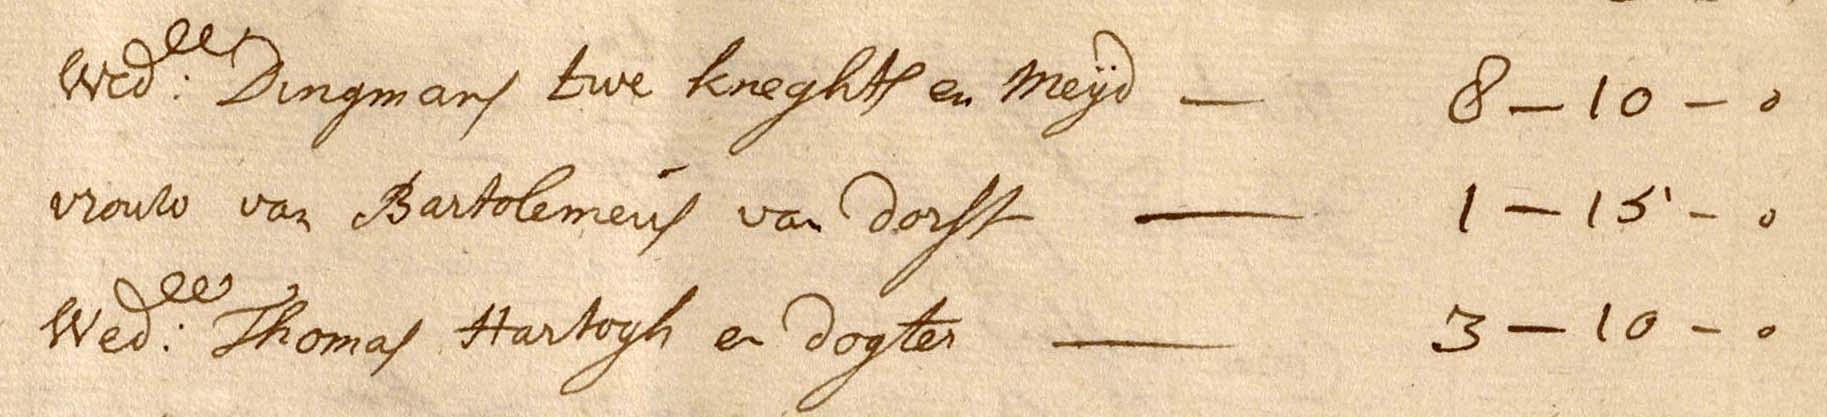 Wed:ee Dingmans twe kneghts en Meÿd — 8 – 10 – 0
vrouw van Bartolemeus van dorst — 1 – 15 – 0
Wed:ee Thomas Hartogh en dogter — 3 – 10 – 0